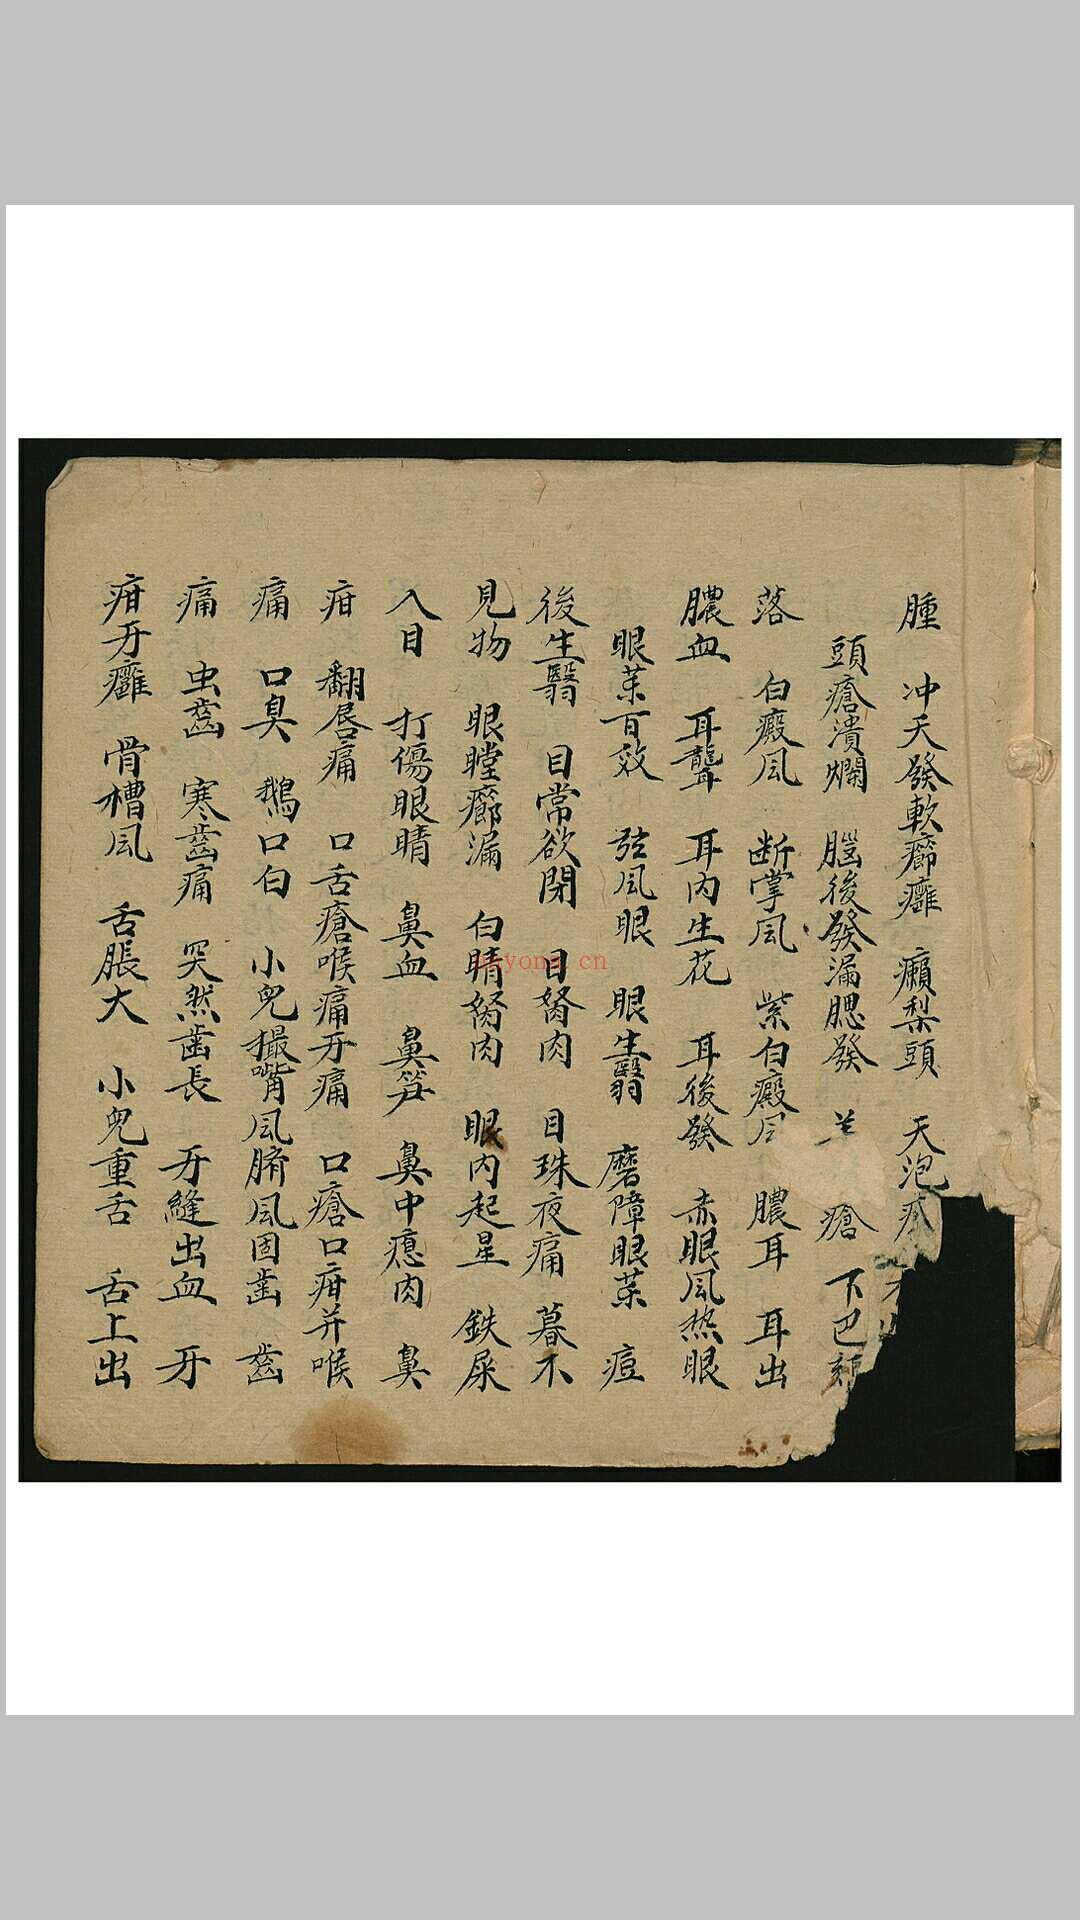 腫　冲天發軟癤癰　癩梨頭　天泡
頭瘡潰爛　腦後發漏腮發　瘡　下巴
落　白癜風　断掌風　紫白癜風　膿耳　耳出
膿血　耳聾　耳内生花　耳後發　赤眼風热眼
眼葯百效　弦風眼　眼生翳　磨障眼葯　痘
後生翳　目常欲閉　目胬肉　目珠夜痛　暮不
見物　眼瞠癤漏　白睛胬肉　眼内起星　鉄屎
入目　打傷眼睛　鼻血　鼻笋　鼻中瘜肉　鼻
疳　翻唇痛　口舌瘡喉痛牙痛　口瘡口疳并喉
痛　口臭　鵝口白　小兒撮嘴風臍風固齒　齒
痛　虫齒　寒齒痛　突然齒長　牙縫出血　牙
疳牙癰　骨槽風　舌脹大　小兒重舌　舌上出